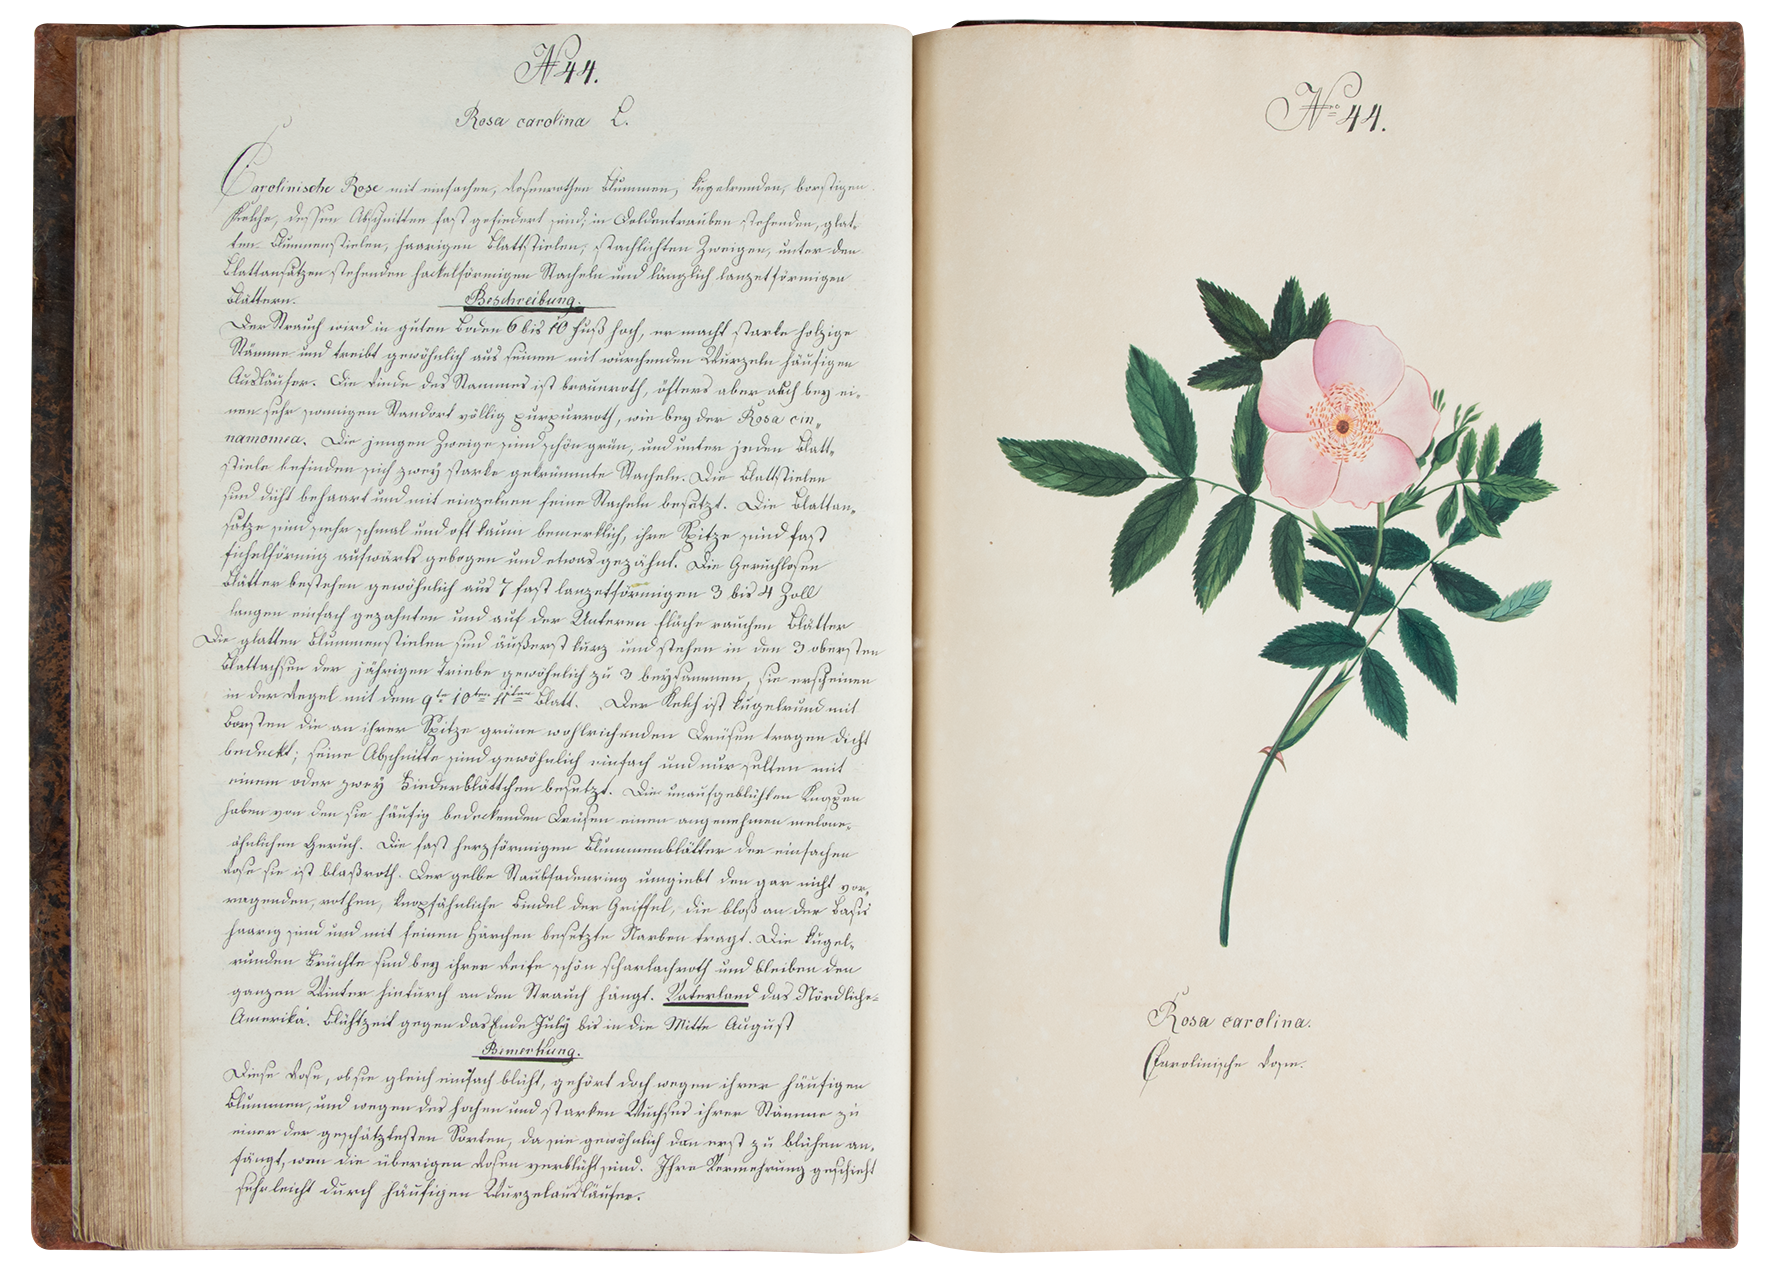 No 44.
Rosa carolina L.
Carolinische Rose mit einfachen, rosenrothen Blummen, kugelrunden, borstigen
Kelche, dessen Abschnitten fast gefiedert sind; in Doldentrauben stehenden, glat-
ten Blummenstielen, haarigen Blattstielen, stachlichten Zweigen, unter den
Blattansätzen stehenden hackelförmigen Stacheln und länglich lanzetförmigen
Blättern.
Beschreibung.
Der Strauch wird in guten Boden 6 bis 10 Fuß hoch, er macht starke holzige
Stämme und treibt gewöhnlich aus seinen mit wurchenden Wurzeln häufigen
Ausläufer. Die Rinde des Stammes ist braunroth, öfters aber auch bey ei-
nen sehr sonnigen Standort völlig purpurroth, wie bey der Rosa cin-
namomea. Die jungen Zweige sind schön grün, und unter jeden Blatt-
stiele befinden sich zwey starke gekrümmte Stacheln. Die Blattstielen
sind dicht behaart und mit einzelnen feine Stacheln besetzt. Die Blattan-
sätze sind sehr schmal und oft kaum bemerklich, ihre Spitze sind fast
sichelförmig aufwärts gebogen und etwas gezähnt. Die Geruchlosen
Blätter bestehen gewöhnlich aus 7 fast lanzetförmigen 3 bis 4 Zoll
langen einfach gezahnten und auf der Unteren Fläche rauchen Blätter
Die glatten Blummenstielen sind äußerst kurz und stehen in den 3 obersten
Blattachsen der jährigen Triebe gewöhnlich zu 3 beysammen, sie erscheinen
in der Regel mit dem 9ten 10ten 11ten Blatt. Der Kelch ist kugelrund mit
Borsten die an ihrer Spitze grüne wohlrichenden Drüsen tragen dicht
bedeckt; seine Abschnitte sind gewöhnlich einfach und nur selten mit
einem oder zwey Fiederblättchen besetzt. Die unaufgeblühten Knospen
haben von den sie häufig bedeckenden Drüsen einen angenehmen melone-
ähnlichen Geruch. Die fast herzförmigen Blummenblätter der einfachen
Rose sie ist blaßroth. Der gelbe Staubfadenring umgiebt den gar nicht vor-
ragenden, rothen, knopfähnliche Bündel der Griffel, die bloß an der Basis
haarig sind und mit feinen Härchen besetzte Narben tragt. Die kugel-
runden Früchte sind bey ihrer Reife schön scharlachroth und bleiben den
ganzen Winter hindurch an den Strauch hängt. Vaterland das Nördliche-
Amerika. Blühtzeit gegen das Ende July bis in die Mitte August
Bemerkung.
Diese Rose, ob sie gleich einfach blüht, gehört doch wegen ihrer häufigen
Blummen, und wegen des hohen und starken Wuchses ihrer Stämme zu
einer der geschätztesten Sorten, da sie gewöhnlich dan erst zu blühen an-
fängt, wen die überigen Rosen verblüht sind. Ihre Vermehrung geschieht
sehr leicht durch häufigen Wurzelausläufer.
Nro 44.
Rosa carolina.
Carolinische Rose.